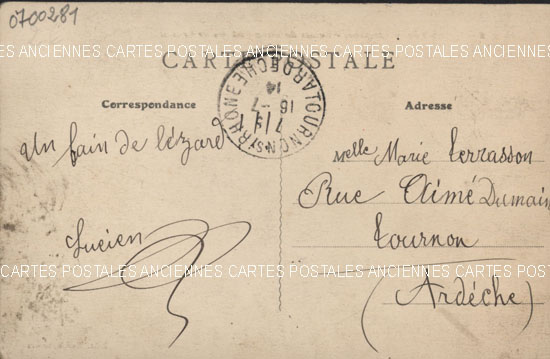 0700281
CARTE POSTALE
CARTES POSTALES ANCIENNES CARTES POSTALES ANCIENNES CARTES POSTALES ANCIENNES
TOURNON S/ RHONE
ARDECHE
7 1/4
16 - 7
14
Correspondance
Adresse
Un bain de lézard
Lucien
Melle Marie Terrasson
Rue Aimé Dumaine
Tournon
(Ardèche)
CARTES POSTALES ANCIENNES CARTES POSTALES ANCIENNES CARTES POSTALES ANCIENNES